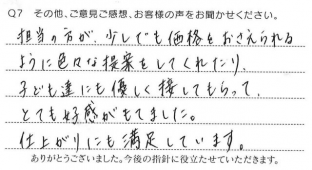 Q7 その他、ご意見ご感想、お客様の声をお聞かせください。
担当の方が、少しでも価格をおさえられる
ように色々な提案をしてくれたり、
子ども達にも優しく接してもらって、
とても好感がもてました。
仕上がりにも満足しています。
ありがとうございました。今後の指針に役立たせていただきます。